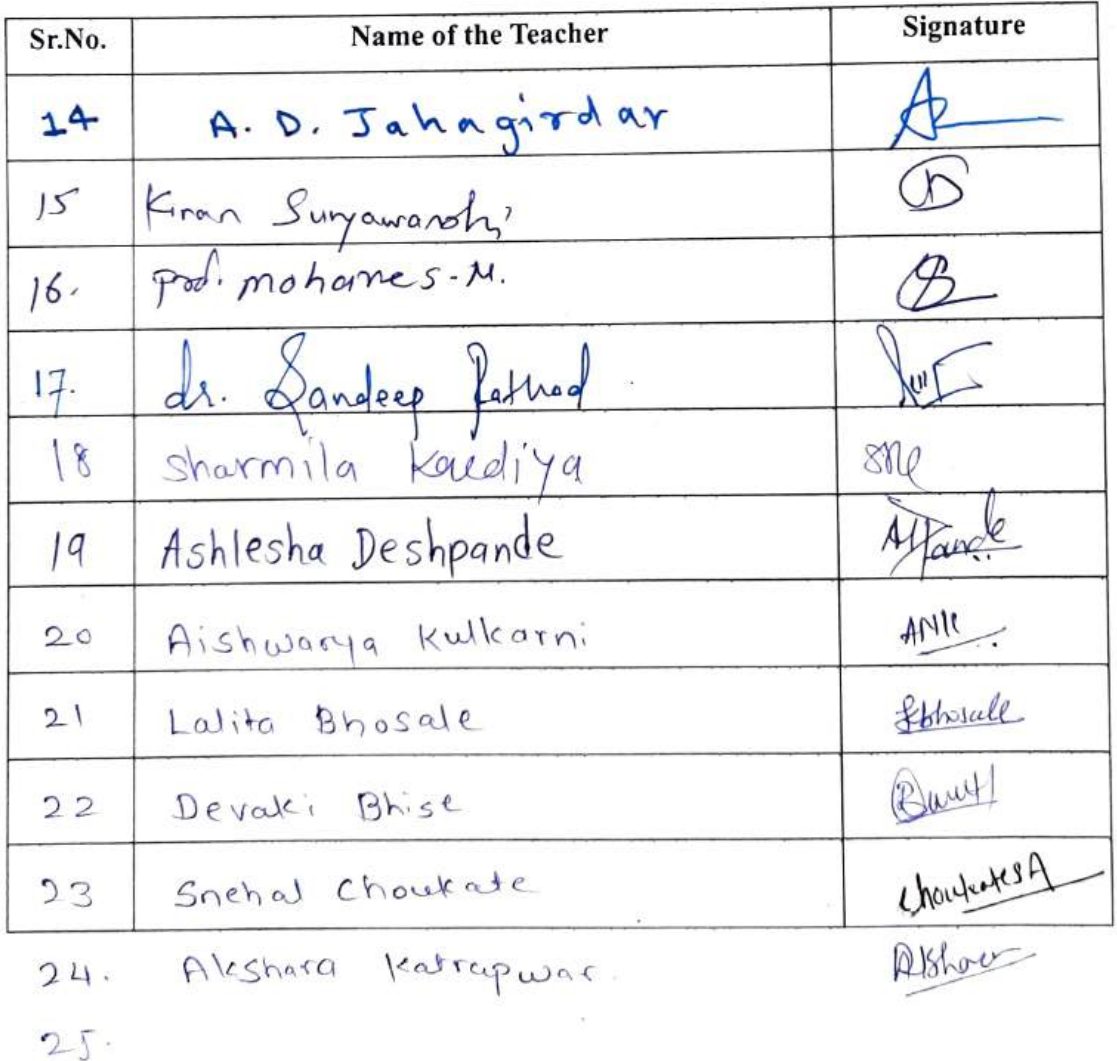 Sr.No. Name of the Teacher Signature
14 A. D. Jahagirdar
15 Kiran Suryawanshi
16. prof. mohane s.M.
17. dr. Sandeep Rathod
18 Sharmila
19 Ashlesha Deshpande
20 Aishwarya Kulkarni ANK
21 Lalita Bhosale Lbhosale
22 Devaki Bhise
23 Snehal Choukate ChoukateSA
24. Akshara Katrapwar.
25.